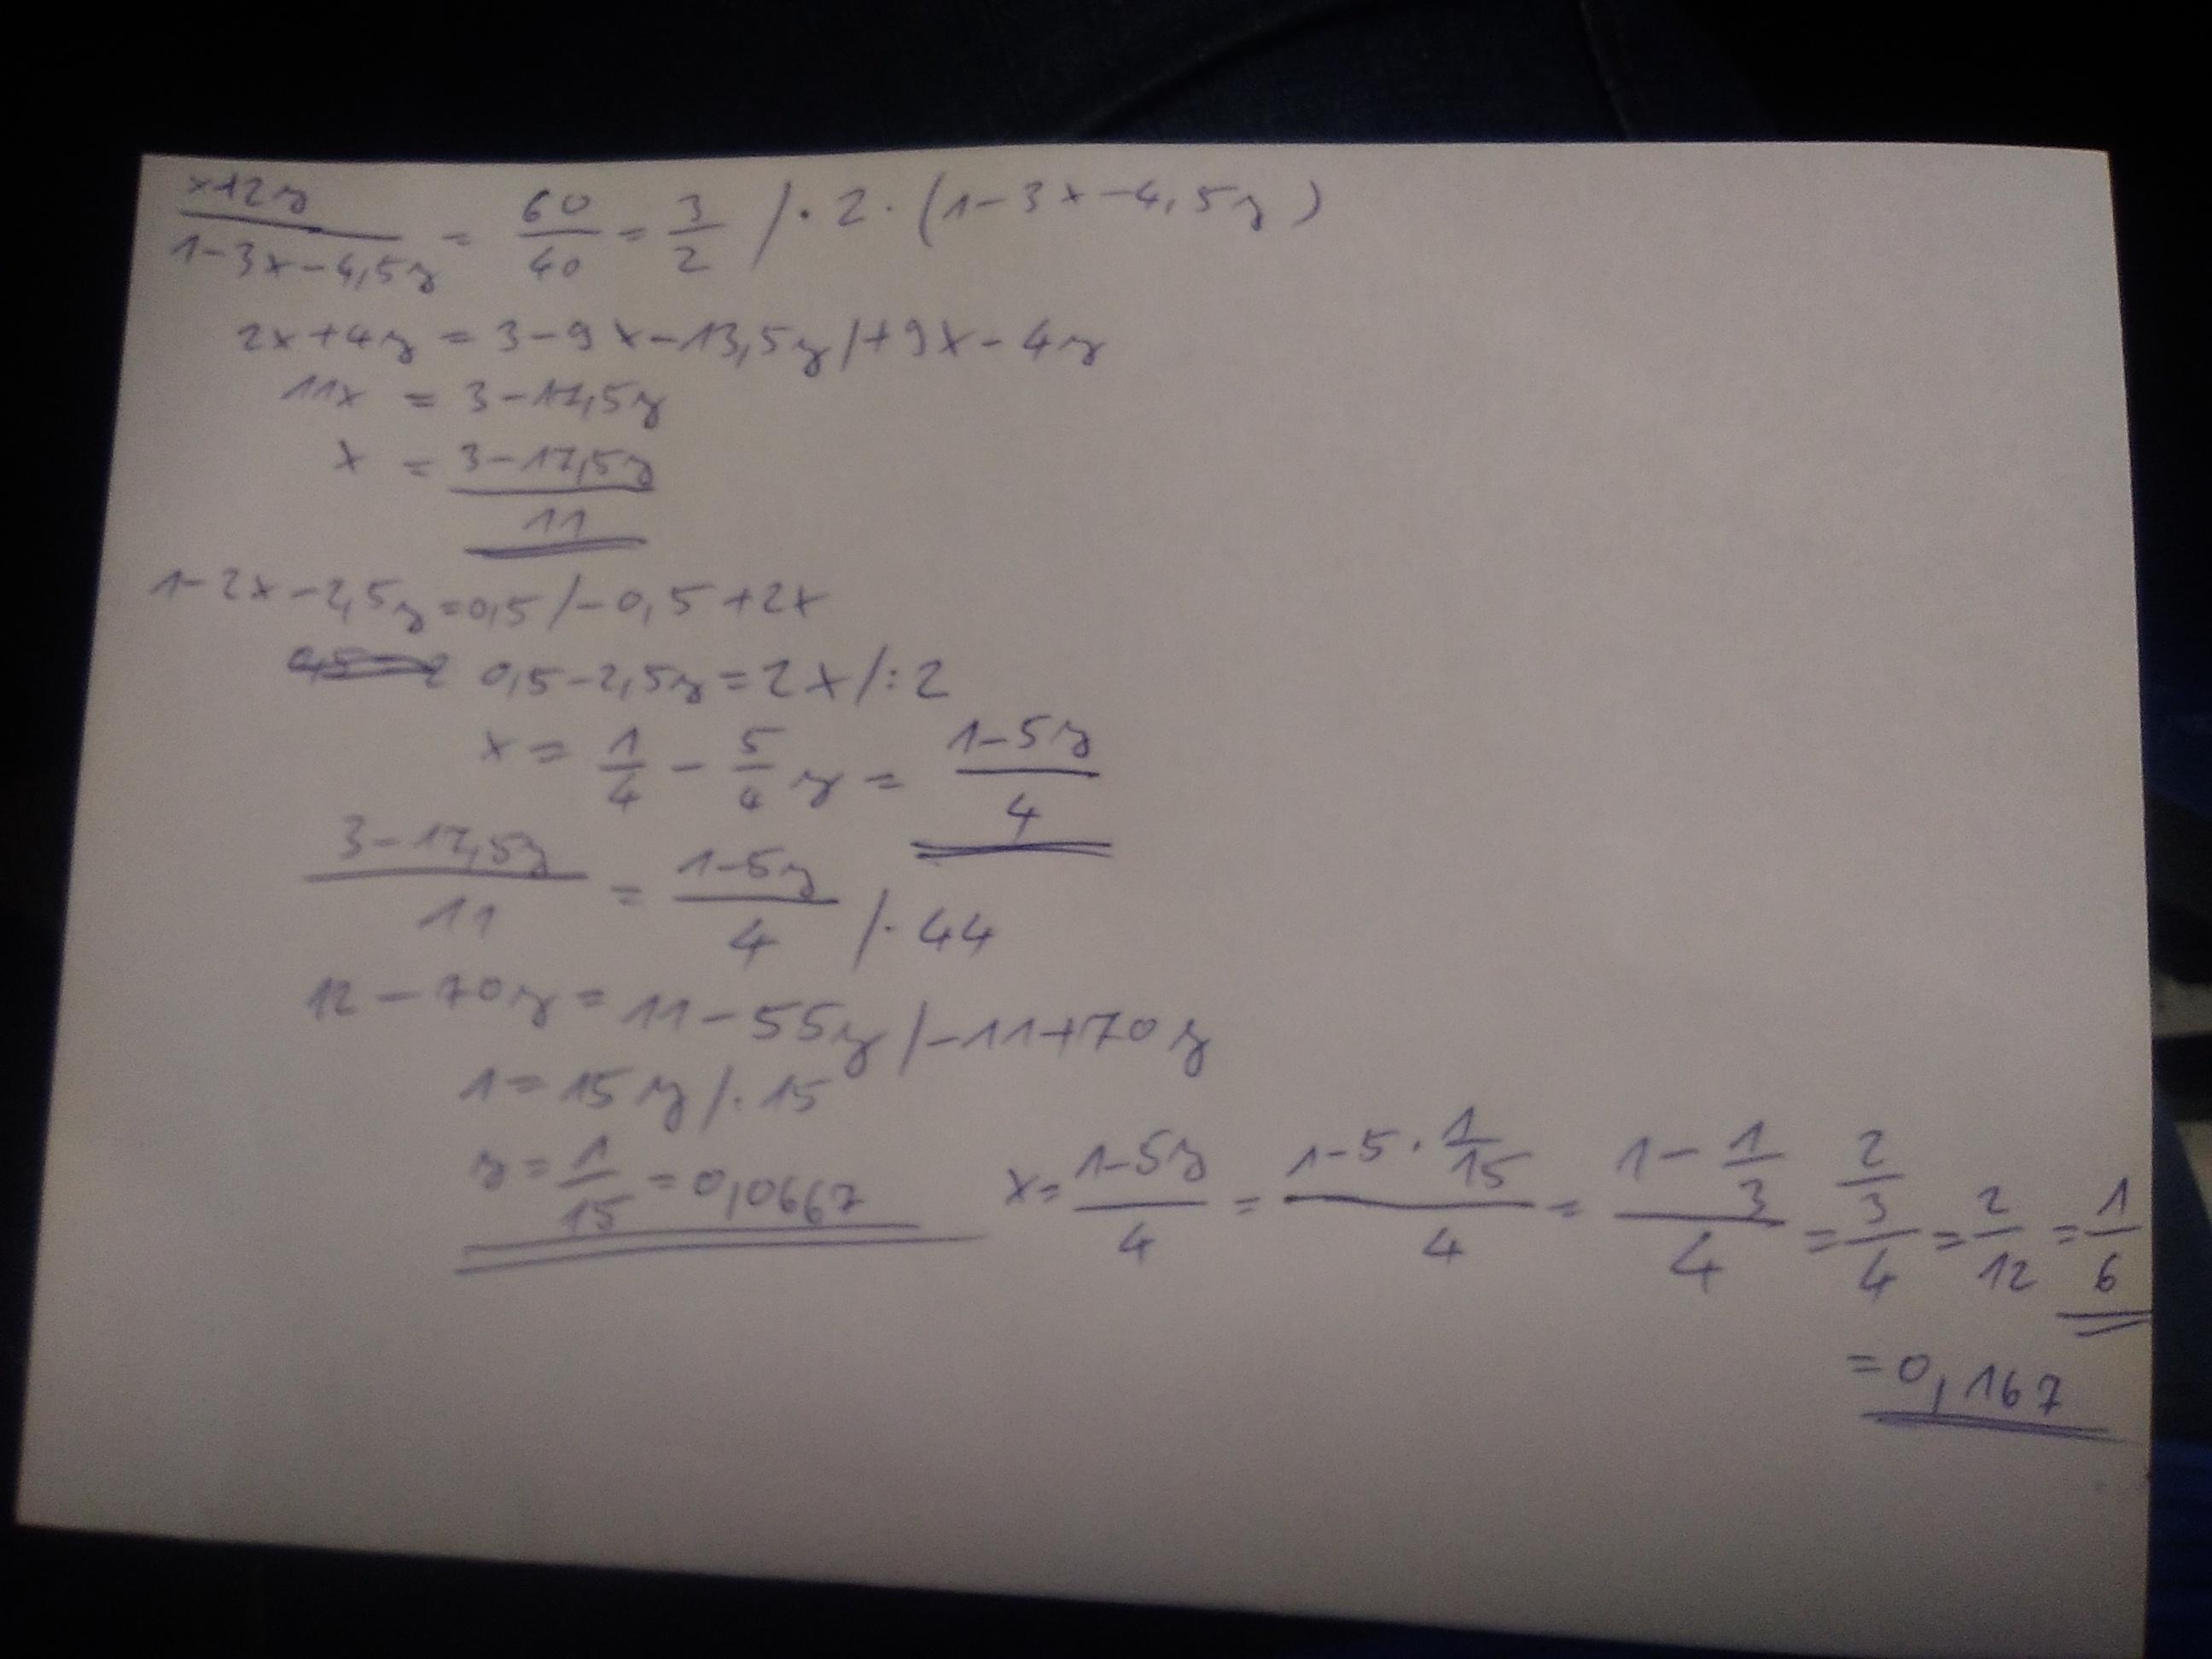 x+2y/1-3x-4,5y = 60/40 = 3/2 /· 2 · (1-3x-4,5y)
2x+4y = 3-9x-13,5y/+9x-4y
11x = 3-17,5y
x = 3-17,5y/11
1-2x-2,5y=0,5/-0,5+2x
0,5-2,5y=2x/:2
x = 1/4 - 5/4 y = 1-5y/4
3-17,5y/11 = 1-5y/4 /· 44
12-70y = 11-55y/-11+70y
1=15y/:15
y = 1/15 = 0,0667
x = 1-5y/4 = 1-5·1/15/4 = 1-1/3/4 = 2/3/4 = 2/12 = 1/6
= 0,167